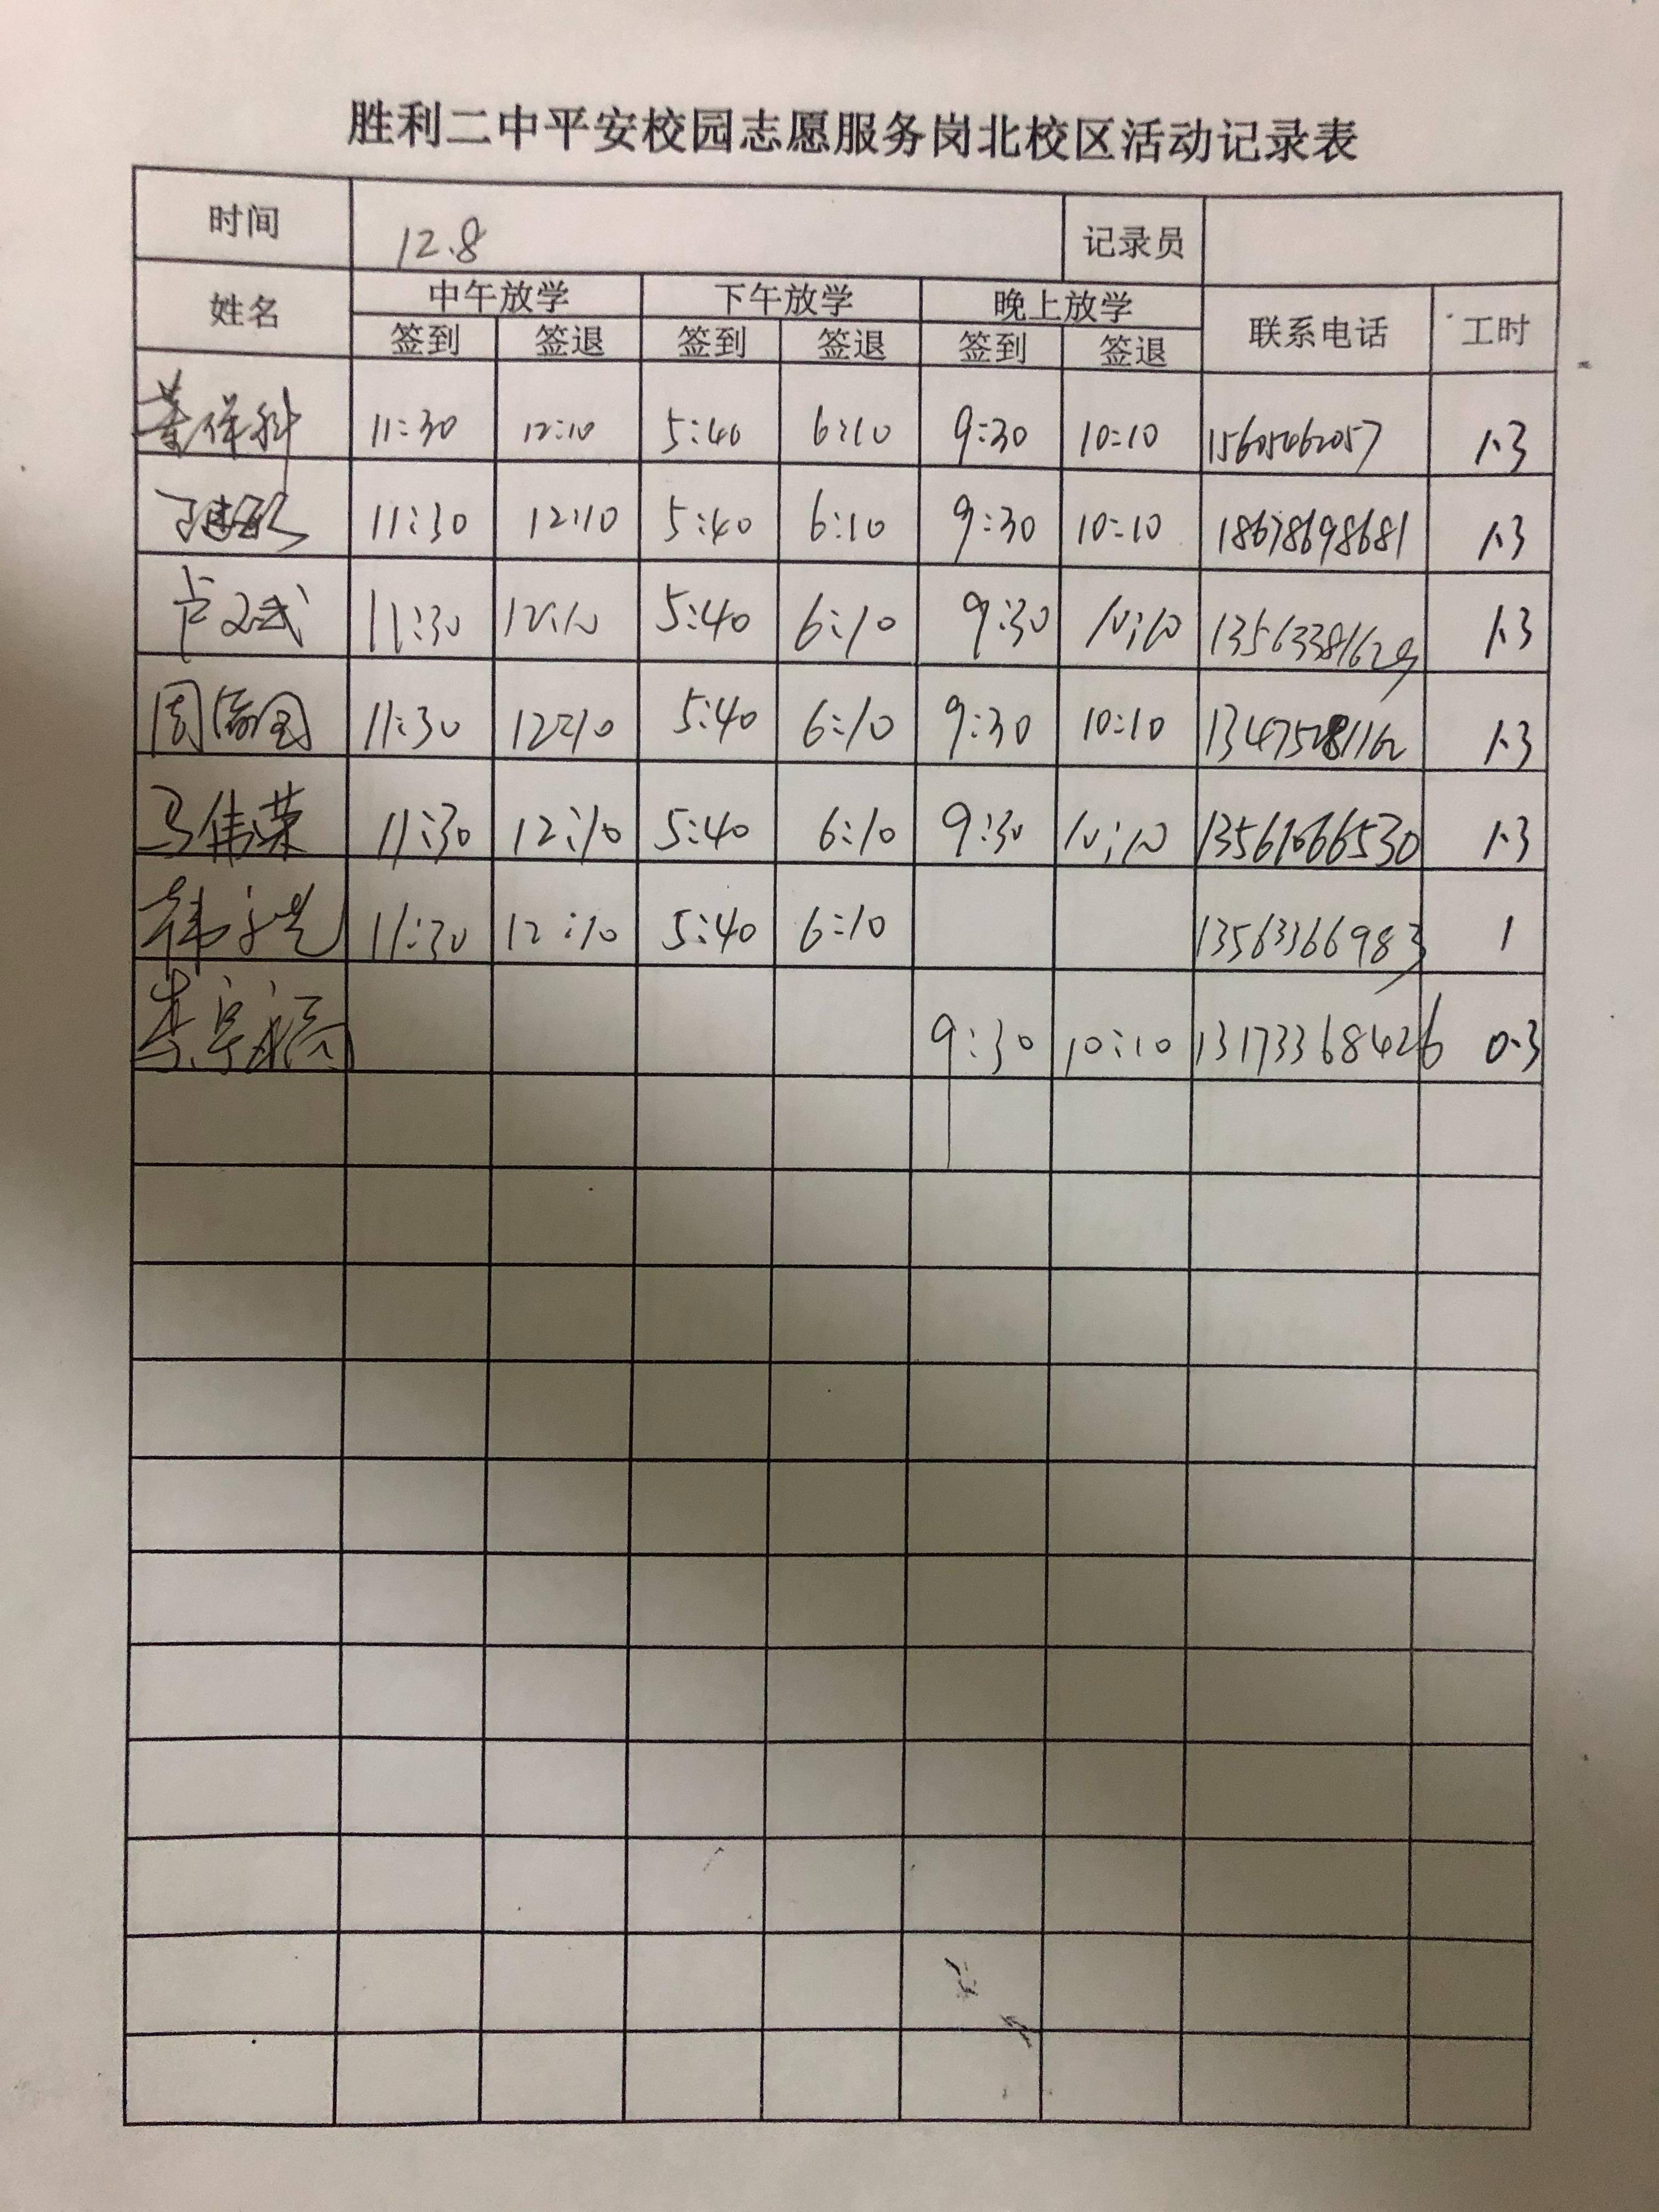 胜利二中平安校园志愿服务岗北校区活动记录表
时间 12.8 记录员
姓名 中午放学 下午放学 晚上放学 联系电话 工时
签到 签退 签到 签退 签到 签退
11:30 12:10 5:40 6:10 9:30 10:10 15605462057 1.3
11:30 12:10 5:40 6:10 9:30 10:10 18678698681 1.3
卢文武 11:30 12:10 5:40 6:10 9:30 10:10 13563381629 1.3
周 11:30 12:10 5:40 6:10 9:30 10:10 1.3
马伟荣 11:30 12:10 5:40 6:10 9:30 10:10 13561066530 1.3
韩 11:30 12:10 5:40 6:10 13563366983 1
李 9:30 10:10 13173368426 0.3